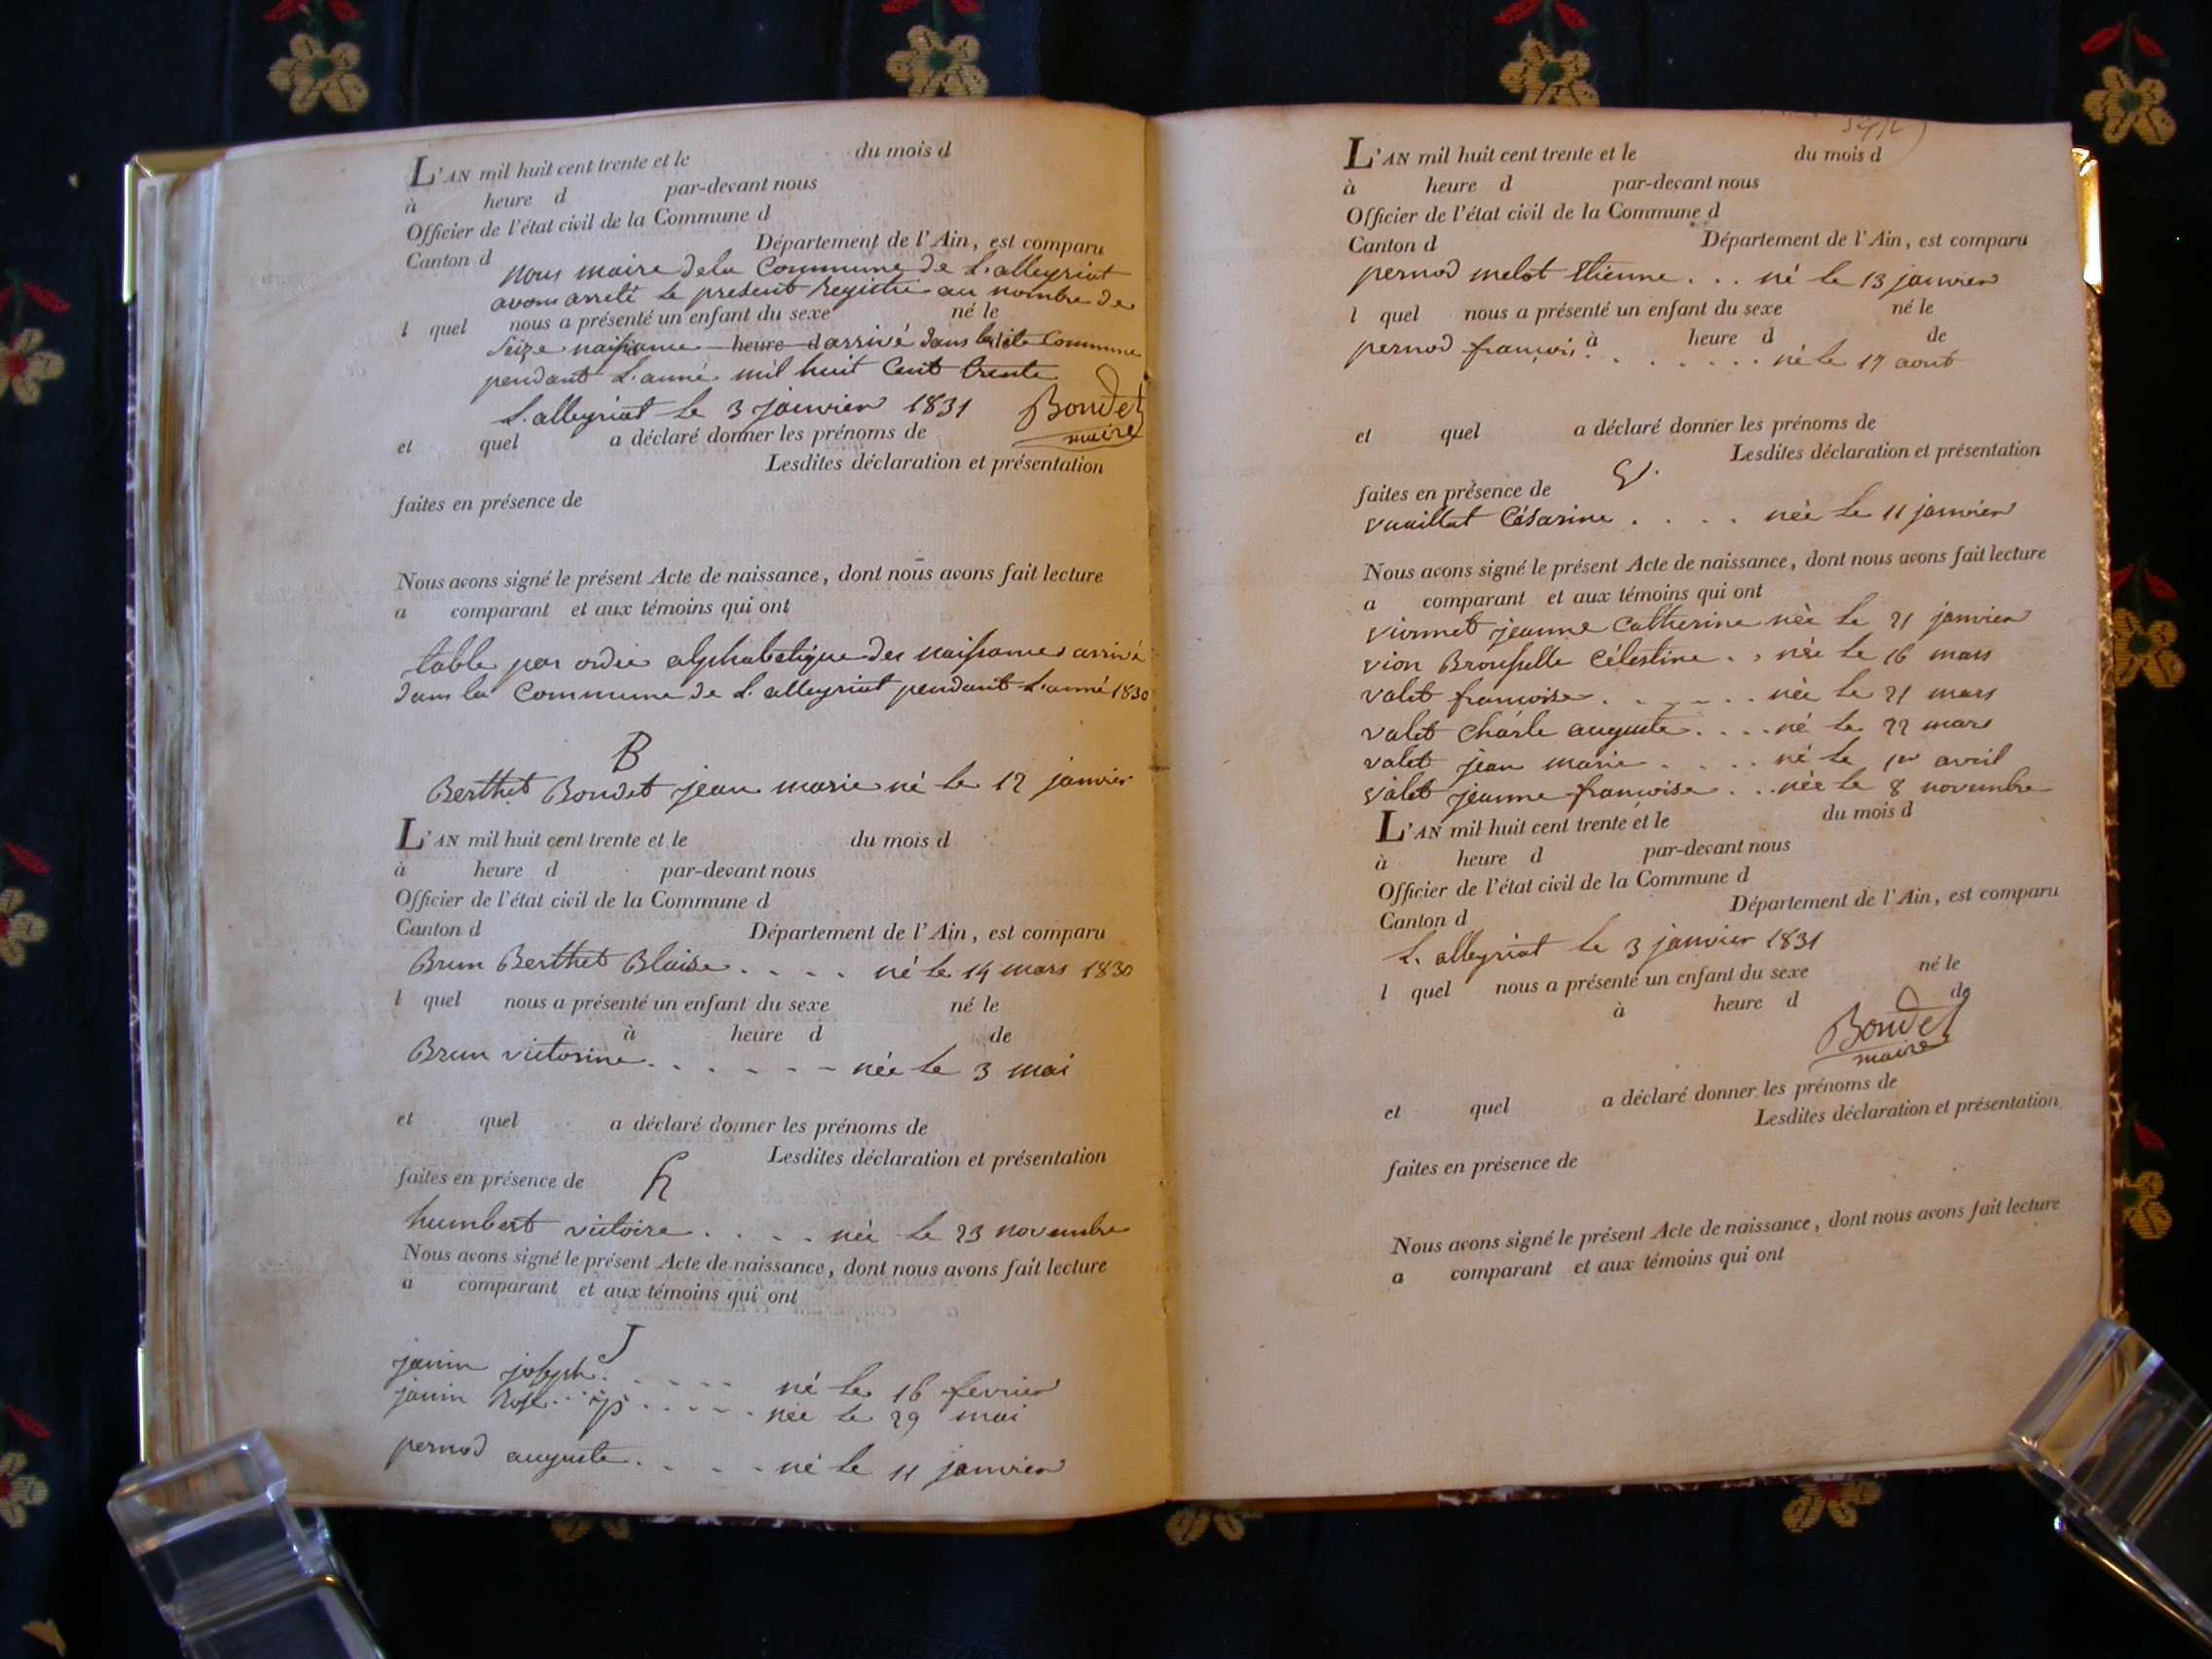 L'AN mil huit cent trente et le du mois d
à heure d par-devant nous
Officier de l'état civil de la Commune d
Canton d Département de l'Ain, est comparu
nous maire dela Commune de L'alleyriat
avons arreté le present registre au nombre de
l quel nous a présenté un enfant du sexe né le
seize naissance heure d arrivé dans ladite Commune
pendant L'anné mil huit Cent trente
L'alleyriat le 3 janvier 1831 Boudet
maire
et quel a déclaré donner les prénoms de
Lesdites déclaration et présentation
faites en présence de
Nous avons signé le présent Acte de naissance, dont nous avons fait lecture
a comparant et aux témoins qui ont
table par ordre alphabetique des naissances arrivé
dans la Commune de L'alleyriat pendant L'anné 1830
B
Berthet Boudet jean marie né le 12 janvier
L'AN mil huit cent trente et le du mois d
à heure d par-devant nous
Officier de l'état civil de la Commune d
Canton d Département de l'Ain, est comparu
Brun Berthet Blaise . . . . né le 14 mars 1830
l quel nous a présenté un enfant du sexe né le
à heure d de
Brun victorine . . . . . . née le 3 mai
et quel a déclaré donner les prénoms de
Lesdites déclaration et présentation
faites en présence de h
humbert victoire . . . . née le 23 novembre
Nous avons signé le présent Acte de naissance, dont nous avons fait lecture
a comparant et aux témoins qui ont
J
janin joseph . . . . . né le 16 fevrier
janin Rose . . . . . . née le 29 mai
p
pernod auguste . . . . né le 11 janvier
L'AN mil huit cent trente et le du mois d
à heure d par-devant nous
Officier de l'état civil de la Commune d
Canton d Département de l'Ain, est comparu
pernod melot Etienne . . . né le 13 janvier
l quel nous a présenté un enfant du sexe né le
à heure d de
pernod françois . . . . . . . né le 17 aout
et quel a déclaré donner les prénoms de
Lesdites déclaration et présentation
faites en présence de V.
vuaillat Césarine . . . . née le 11 janvier
Nous avons signé le présent Acte de naissance, dont nous avons fait lecture
a comparant et aux témoins qui ont
vionnet jeanne Catherine née le 21 janvier
vion Brousselle Célestine . . née le 16 mars
valet francoise . . . . . . née le 21 mars
valet Charle auguste . . . . né le 22 mars
valet jean marie . . . . né le 1er avril
valet jeanne francoise . . . née le 8 novembre
L'AN mil huit cent trente et le du mois d
à heure d par-devant nous
Officier de l'état civil de la Commune d
Canton d Département de l'Ain, est comparu
L. alleyriat le 3 janvier 1831
l quel nous a présenté un enfant du sexe né le
à heure d de
Boudet
maire
et quel a déclaré donner les prénoms de
Lesdites déclaration et présentation
faites en présence de
Nous avons signé le présent Acte de naissance, dont nous avons fait lecture
a comparant et aux témoins qui ont